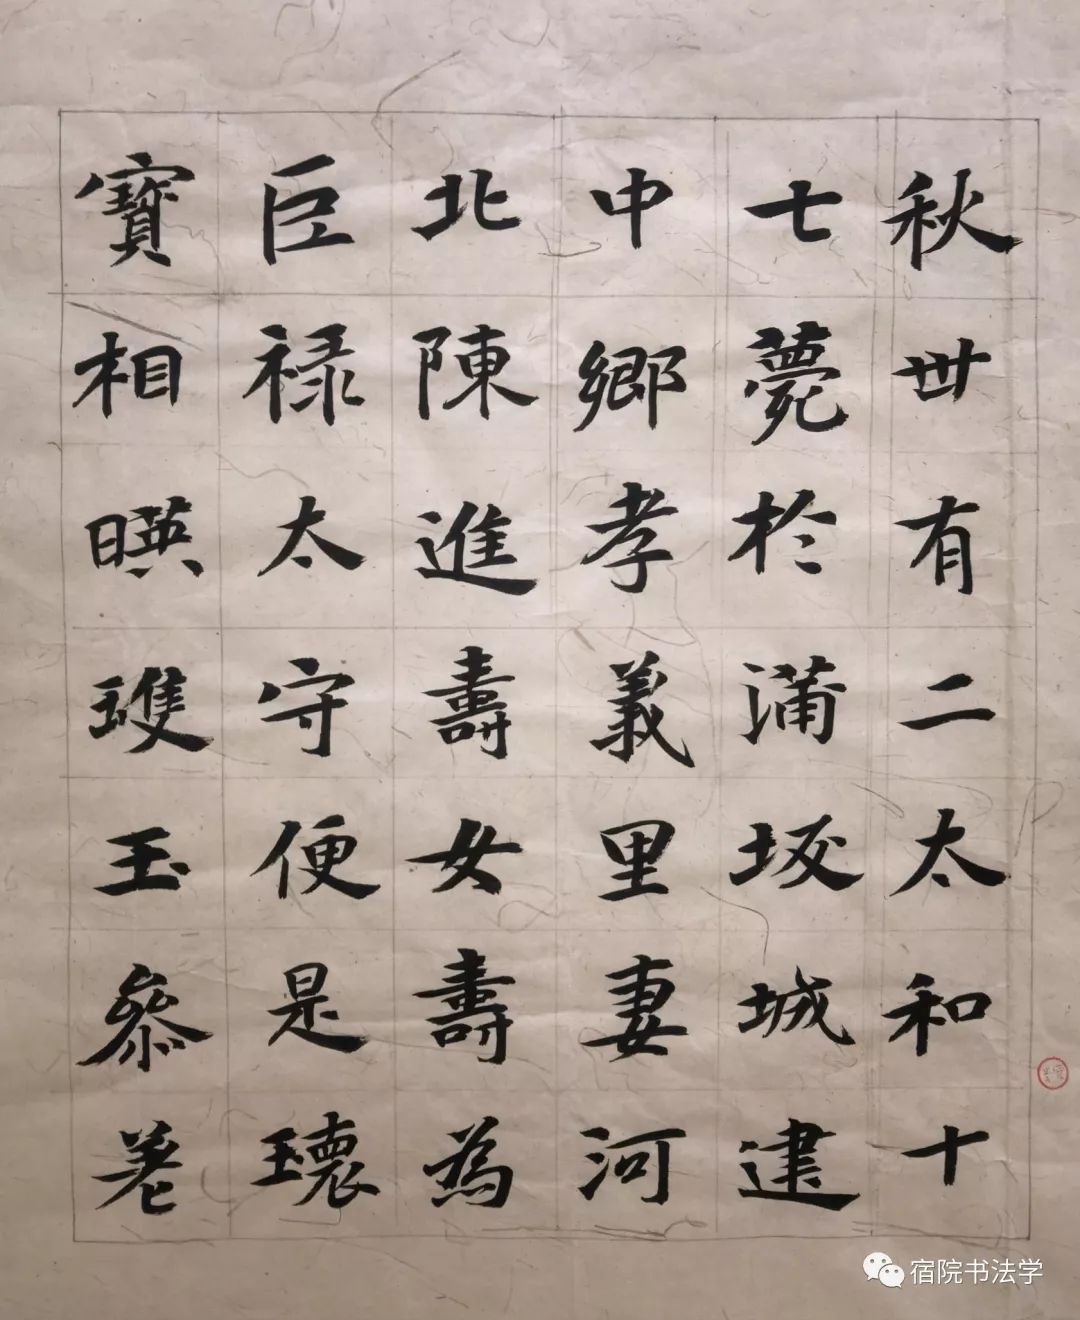 秋卅有二太和十
七薨於蒲坂城建
中鄉孝義里妻河
北陳進壽女壽為
巨祿太守便是瓌
寶相暎瓊玉參差
宿院书法学